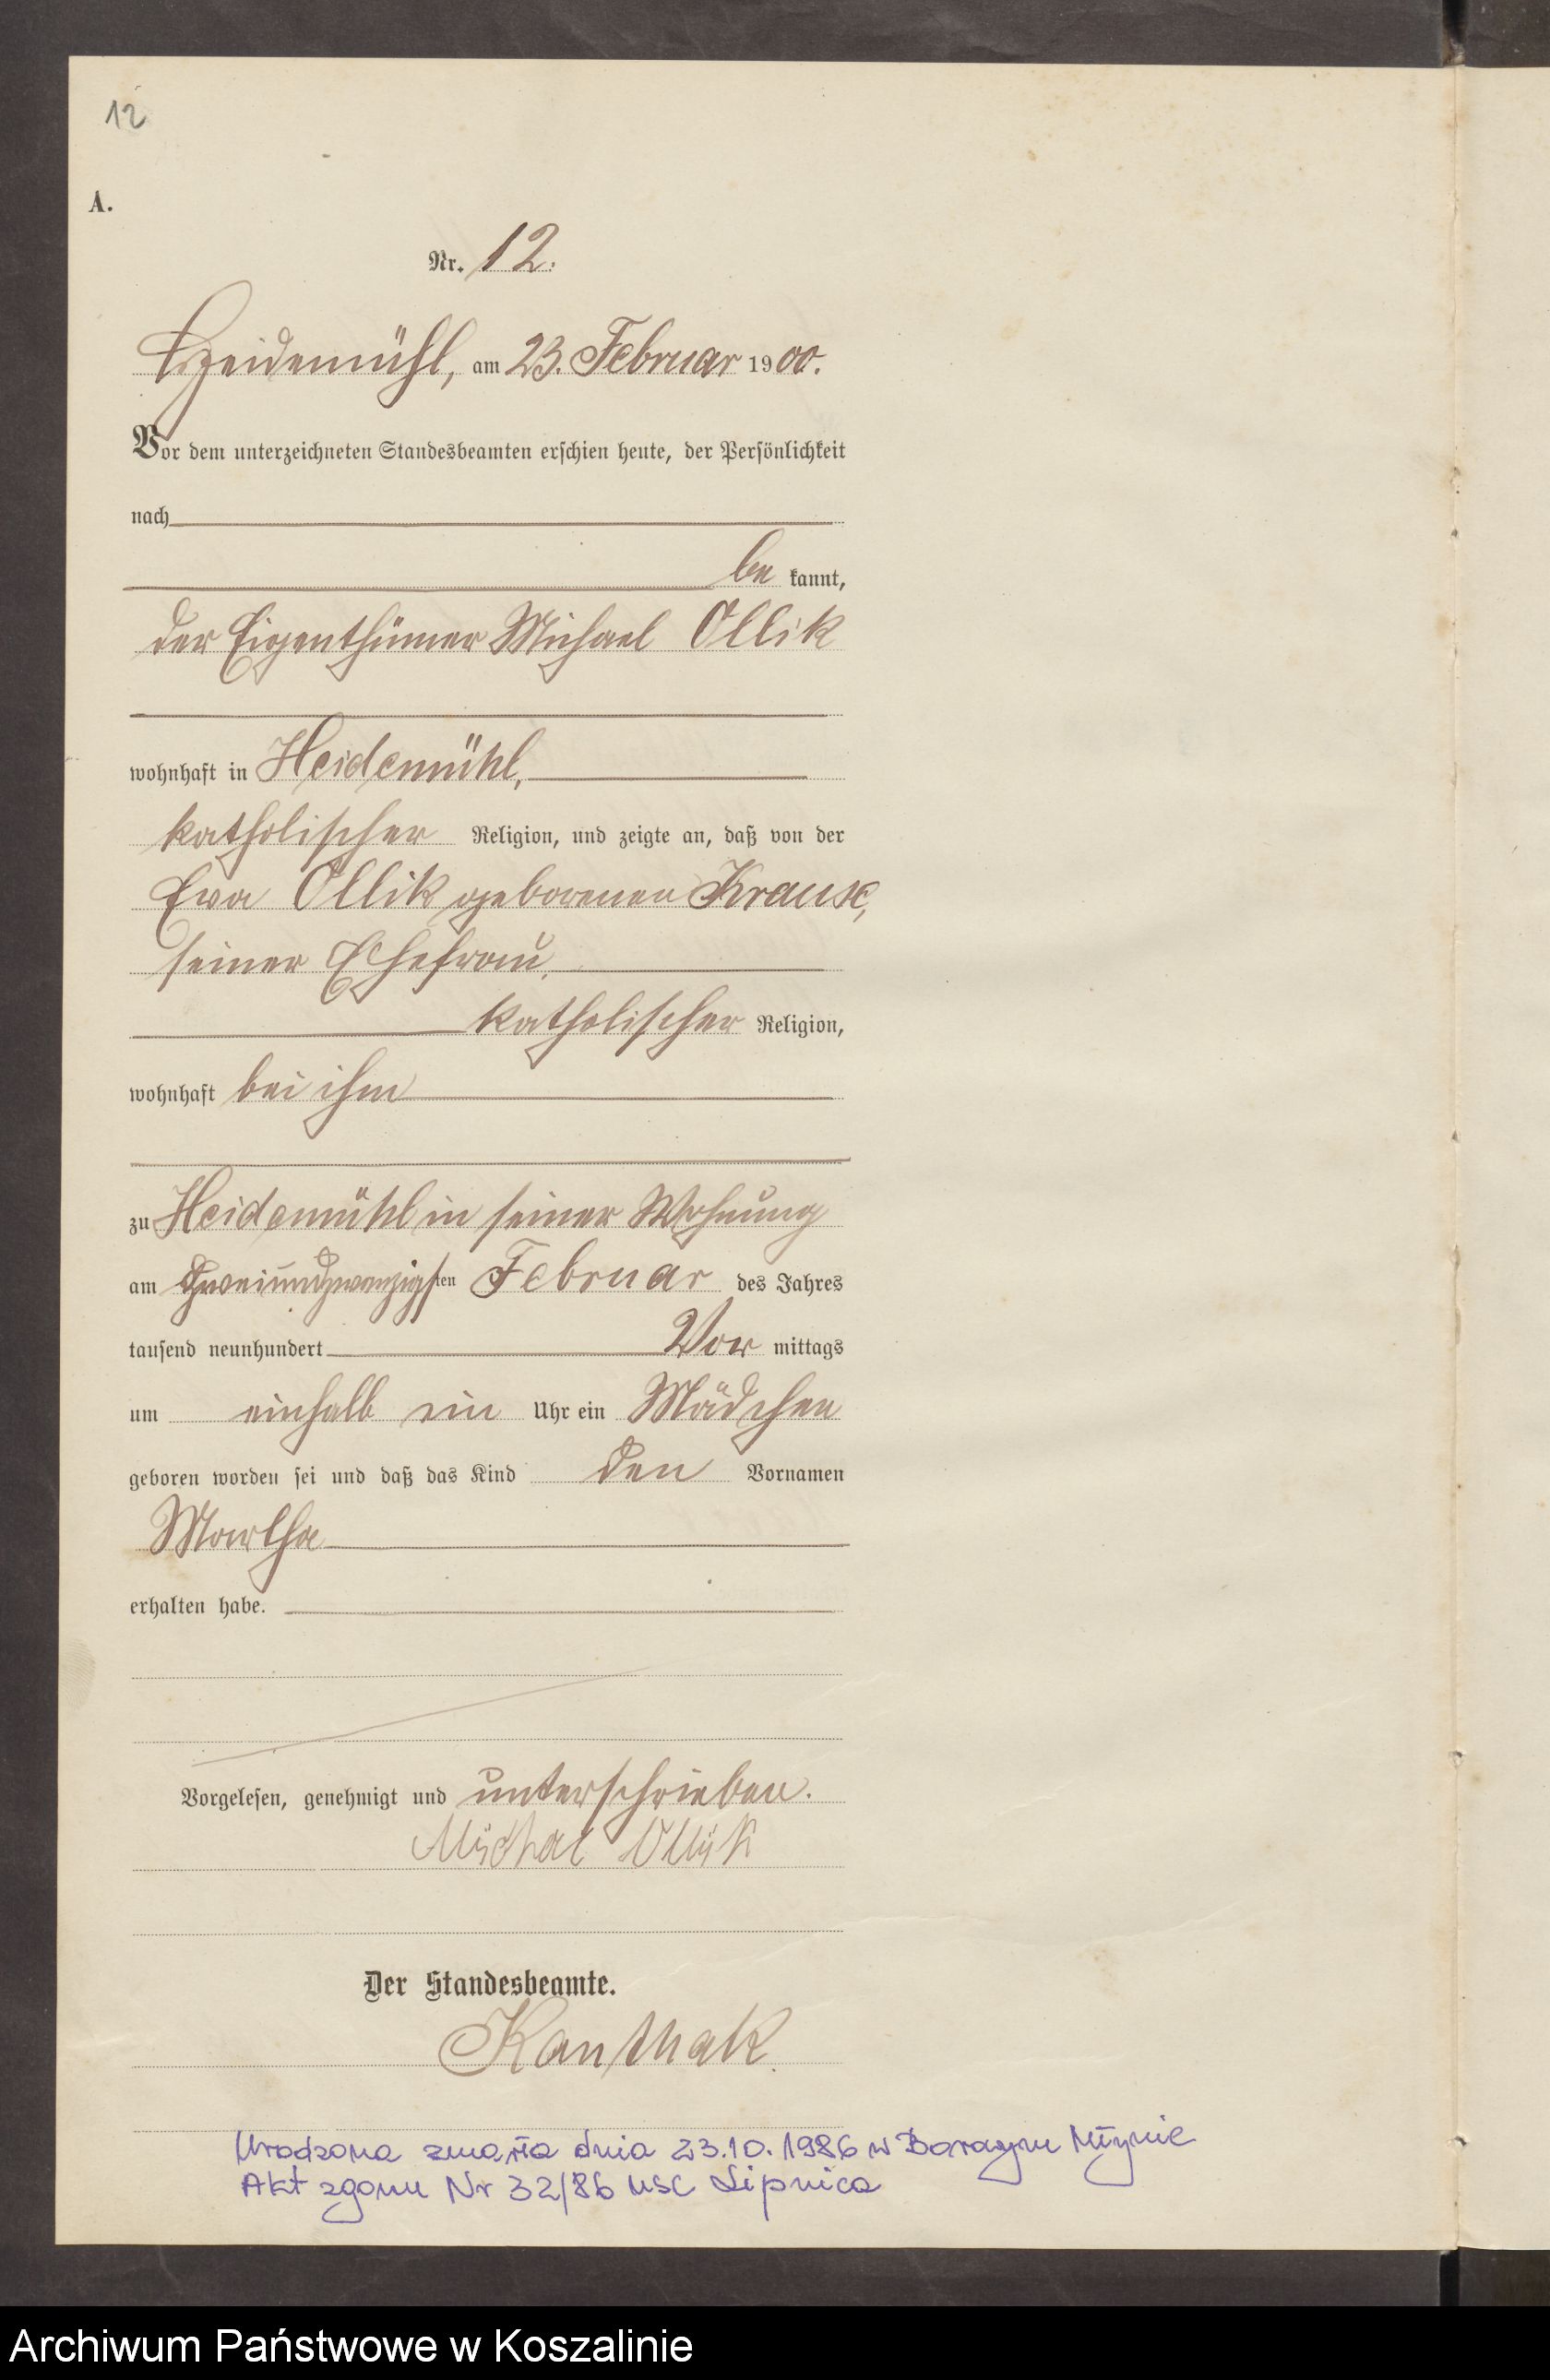 12
A.
Nr. 12.
Heidemühl, am 23. Februar 1900.
Vor dem unterzeichneten Standesbeamten erschien heute, der Persönlichkeit
nach
be kannt,
der Eigenthümer Michael Ollik
wohnhaft in Heidemühl,
katholischer Religion, und zeigte an, daß von der
Eva Ollik geborenen Krause,
seiner Ehefrau,
katholischer Religion,
wohnhaft bei ihm
zu Heidemühl in seiner Wohnung
am zweiundzwanzigsten Februar des Jahres
tausend neunhundert Vor mittags
um einhalb ein Uhr ein Mädchen
geboren worden sei und daß das Kind den Vornamen
Martha
erhalten habe.
Vorgelesen, genehmigt und unterschrieben.
Michael Ollik
Der Standesbeamte.
Kanthak.
Urodzona zmarła dnia 23.10.1986 w Borowym Młynie
Akt zgonu Nr 32/86 USC Lipnica
Archiwum Państwowe w Koszalinie